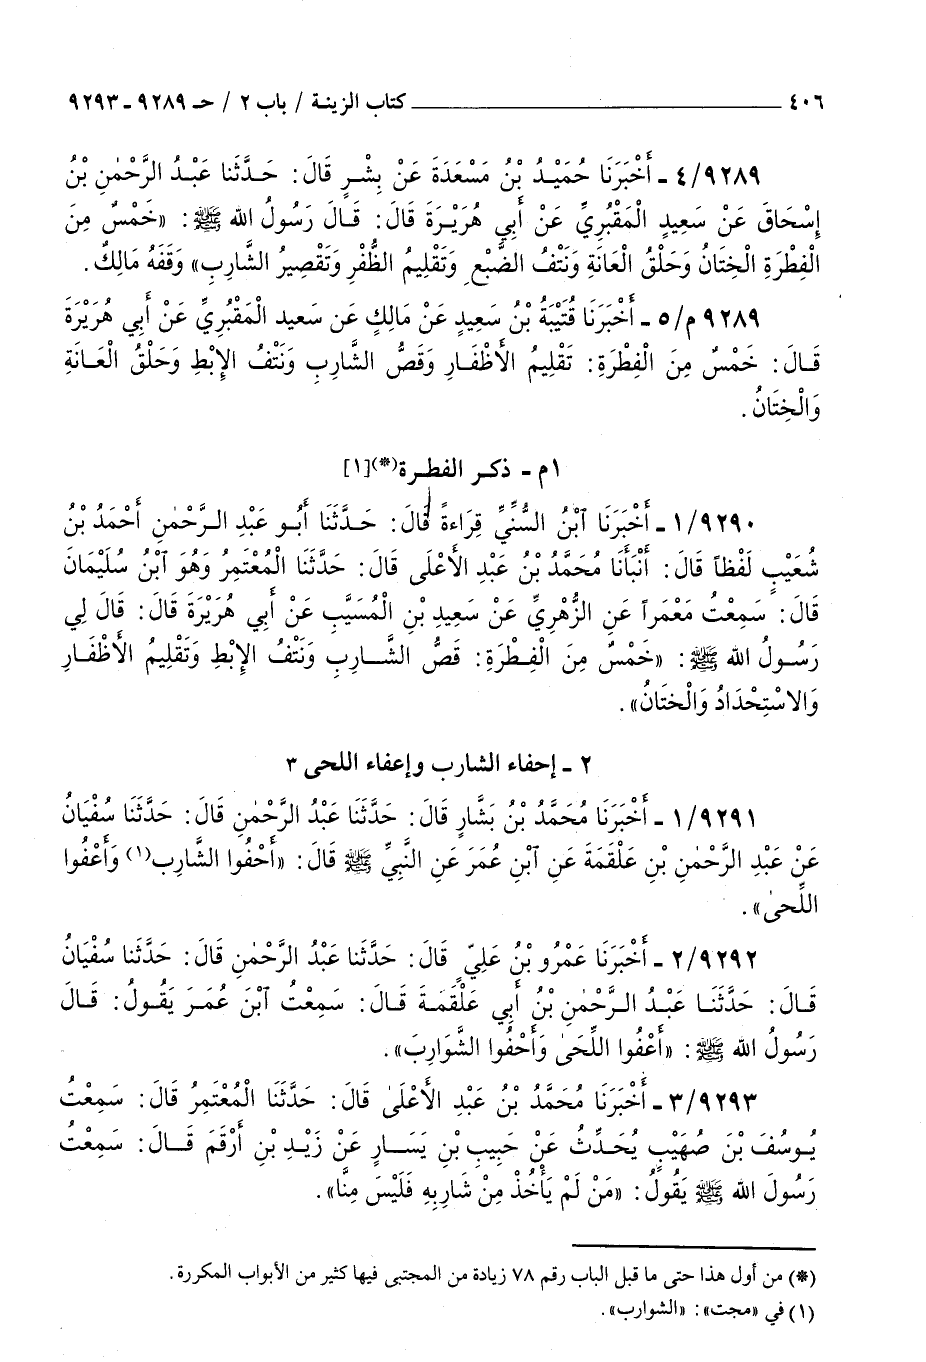 ٤٠٦ ــــــــــــــــــــــــــــــــــــ كتاب الزينة / باب ٢ / حـ ٩٢٨٩ ـ ٩٢٩٣
٤/٩٢٨٩ ـ أَخْبَرَنَا حُمَيْدُ بْنُ مَسْعَدَةَ عَنْ بِشْرٍ قَالَ: حَدَّثَنا عَبْدُ الرَّحْمٰنِ بْنُ
إِسْحَاقَ عَنْ سَعِيدٍ الْمَقْبُرِيِّ عَنْ أَبِي هُرَيْرَةَ قَالَ: قَالَ رَسُولُ الله ﷺ: «خَمْسٌ مِنَ
الْفِطْرَةِ الْخِتَانُ وَحَلْقُ الْعَانَةِ وَنَتْفُ الضَّبْعِ وَتَقْلِيمُ الظُّفْرِ وَتَقْصِيرُ الشَّارِبِ» وَقَفَهُ مَالِكٌ.
٩٢٨٩ م/٥ ـ أَخْبَرَنَا قُتَيْبَةُ بْنُ سَعِيدٍ عَنْ مَالِكٍ عَن سَعيد الْمَقْبُرِيِّ عَنْ أَبِي هُرَيْرَةَ
قَالَ: خَمْسٌ مِنَ الْفِطْرَةِ: تَقْلِيمُ الأَظْفَارِ وَقَصُّ الشَّارِبِ وَنَتْفُ الإِبْطِ وَحَلْقُ الْعَانَةِ
وَالْخِتَانُ.
١م ـ ذكر الفطرة(*)[١]
١/٩٢٩٠ ـ أَخْبَرَنَا ٱبْنُ السُّنِّيِّ قِرَاءةً قَالَ: حَدَّثَنَا أَبُو عَبْدِ الرَّحْمٰنِ أَحْمَدُ بْنُ
شُعَيْبٍ لَفْظاً قَالَ: أَنْبَأَنَا مُحَمَّدُ بْنُ عَبْدِ الأَعْلَى قَالَ: حَدَّثَنَا الْمُعْتَمِرُ وَهُوَ ٱبْنُ سُلَيْمَانَ
قَالَ: سَمِعْتُ مَعْمَراً عَنِ الزُّهْرِيِّ عَنْ سَعِيدِ بْنِ الْمُسَيَّبِ عَنْ أَبِي هُرَيْرَةَ قَالَ: قَالَ لِي
رَسُولُ الله ﷺ: «خَمْسٌ مِنَ الْفِطْرَةِ: قَصُّ الشَّارِبِ وَنَتْفُ الإِبْطِ وَتَقْلِيمُ الأَظْفَارِ
وَالاسْتِحْدَادُ وَالْختَانُ».
٢ ـ إحفاء الشارب وإعفاء اللحى ٣
١/٩٢٩١ ـ أَخْبَرَنَا مُحَمَّدُ بْنُ بَشَّارٍ قَالَ: حَدَّثَنَا عَبْدُ الرَّحْمٰنِ قَالَ: حَدَّثَنَا سُفْيَانُ
عَنْ عَبْدِ الرَّحْمٰنِ بْنِ عَلْقَمَةَ عَنِ ٱبْنِ عُمَرَ عَنِ النَّبِيِّ ﷺ قَالَ: «أَحْفُوا الشَّارِب(١) وَأَعْفُوا
اللِّحىٰ».
٢/٩٢٩٢ ـ أَخْبَرَنَا عَمْرُو بْنُ عَلِيٍّ قَالَ: حَدَّثَنا عَبْدُ الرَّحْمٰنِ قَالَ: حَدَّثَنا سُفْيَان
قَالَ: حَدَّثَنَا عَبْدُ الرَّحْمٰنِ بْنُ أَبِي عَلْقَمَةَ قَالَ: سَمِعْتُ ٱبْنَ عُمَرَ يَقُولُ: قَالَ
رَسُولُ الله ﷺ: «أَعْفُوا اللِّحَىٰ وَأَحْفُوا الشَّوَارِبَ».
٣/٩٢٩٣ ـ أَخْبَرَنَا مُحَمَّدُ بْنُ عَبْدِ الأَعْلَىٰ قَالَ: حَدَّثَنَا الْمُعْتَمِرُ قَالَ: سَمِعْتُ
يُوسُفَ بْنَ صُهَيْبٍ يُحَدِّثُ عَنْ حَبِيبِ بْنِ يَسَارٍ عَنْ زَيْدِ بْنِ أَرْقَمَ قَالَ: سَمِعْتُ
رَسُولَ الله ﷺ يَقُولُ: «مَنْ لَمْ يَأْخُذْ مِنْ شَارِبِهِ فَلَيْسَ مِنَّا».
(*) من أول هذا حتى ما قبل الباب رقم ٧٨ زيادة من المجتبى فيها كثير من الأبواب المكررة.
(١) في «مجت»: «الشوارب».